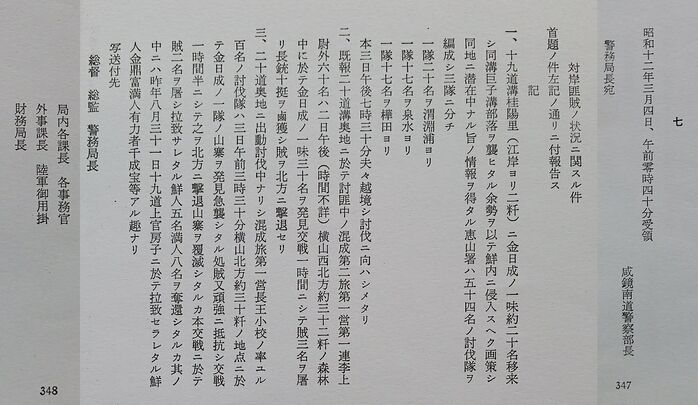 七
昭和十二年三月四日、午前零時四十分受領
咸鏡南道警察部長
警務局長宛
対岸匪賊ノ状況ニ関スル件
首題ノ件左記ノ通リニ付報告ス
記
一、十九道溝桂陽里（江岸ヨリ二粁）ニ金日成ノ一味約二十名移来
シ同溝巨子溝部落ヲ襲ヒタル余勢ヲ以テ鮮内ニ侵入スヘク画策シ
同地ニ潜在中ナル旨ノ情報ヲ得タル恵山署ハ五十四名ノ討伐隊ヲ
編成シ三隊ニ分チ
一隊二十名ヲ渭淵浦ヨリ
一隊十七名ヲ泉水ヨリ
一隊十七名ヲ樺田ヨリ
本三日午後七時三十分夫々越境シ討伐ニ向ハシメタリ
二、既報二十道溝奥地ニ於テ討匪中ノ混成第二旅第一営第一連李上
尉外六十名ハ二日午後（時間不詳）横山西北方約三十二粁ノ森林
中ニ於テ金日成ノ一味三十名ヲ発見交戦一時間ニシテ賊三名ヲ屠
リ長銃十挺ヲ鹵獲シ賊ヲ北方ニ撃退セリ
三、二十道奥地ニ出動討伐中ナリシ混成旅第一営長王小校ノ率ユル
百名ノ討伐隊ハ三日午前三時三十分横山北方約三十粁ノ地点ニ於
テ金日成ノ一隊ノ山寨ヲ発見急襲シタル処賊又頑強ニ抵抗シ交戦
一時間半ニシテ之ヲ北方ニ撃退山寨ヲ覆滅シタルカ本交戦ニ於テ
賊二名ヲ屠シ拉致サレタル鮮人五名満人八名ヲ奪還シタルカ其ノ
中ニハ昨年八月三十一日十九道上官房子ニ於テ拉致セラレタル鮮
人金鼎富満人有力者千成宝等アル趣ナリ
写送付先
総督　総監　警務局長
局内各課長　各事務官
外事課長　陸軍御用掛
財務局長
347
348